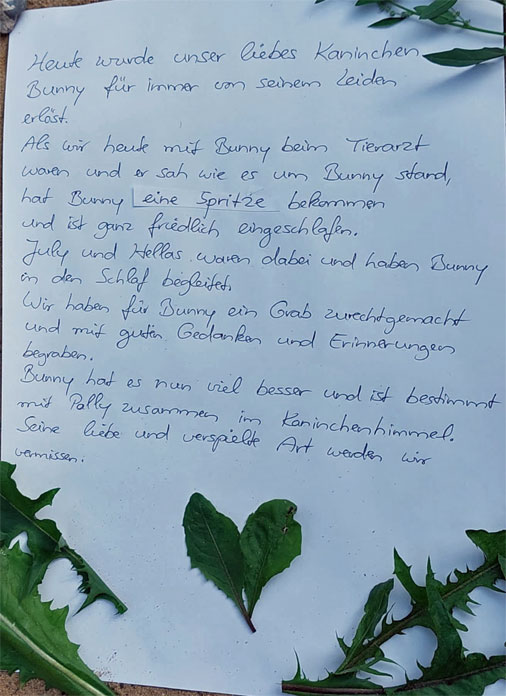 Heute wurde unser liebes Kaninchen
Bunny für immer von seinem Leiden
erlöst.
Als wir heute mit Bunny beim Tierarzt
waren und er sah wie es um Bunny stand,
hat Bunny eine Spritze bekommen
und ist ganz friedlich eingeschlafen.
July und Hellas waren dabei und haben Bunny
in den Schlaf begleitet.
Wir haben für Bunny ein Grab zurechtgemacht
und mit guten Gedanken und Erinnerungen
begraben.
Bunny hat es nun viel besser und ist bestimmt
mit Pally zusammen im Kaninchenhimmel.
Seine liebe und verspielte Art werden wir
vermissen.